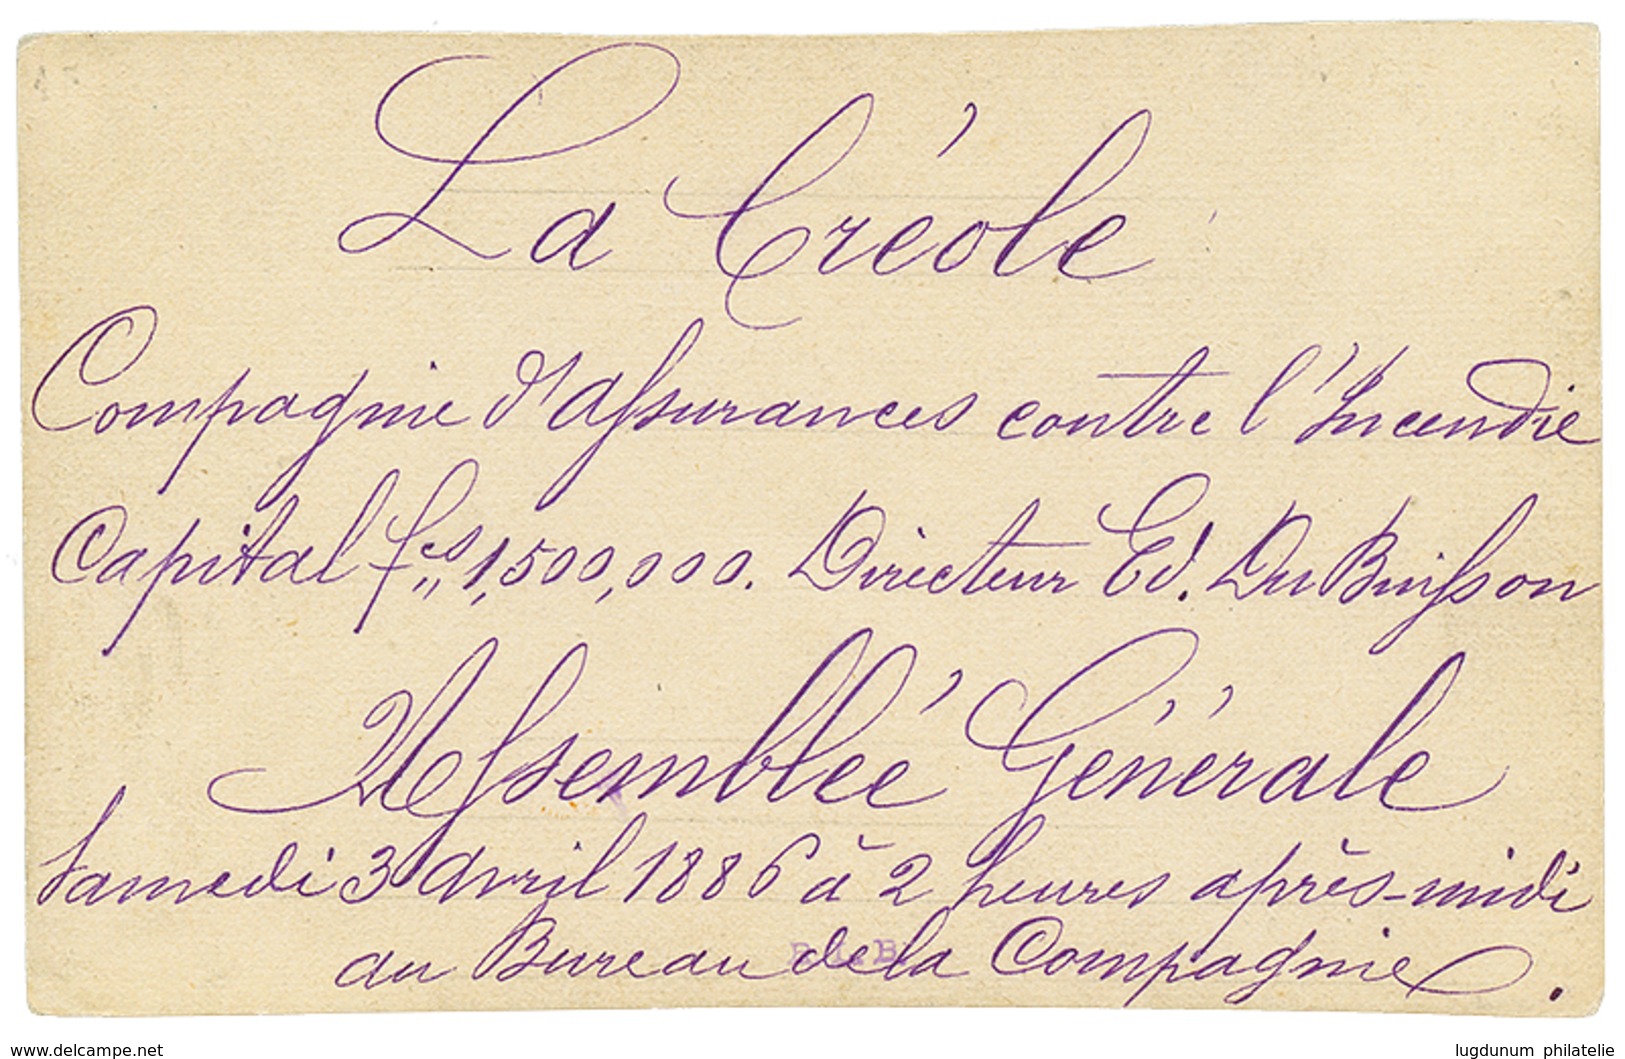 La Créole
Compagnie d'Assurances contre l'Incendie
Capital fcs 1,500,000. Directeur Ed. Du Buisson
Assemblée Générale
Samedi 3 Avril 1886 à 2 heures après-midi
au Bureau de la Compagnie.
www.delcampe.net
lugdunum philatelie